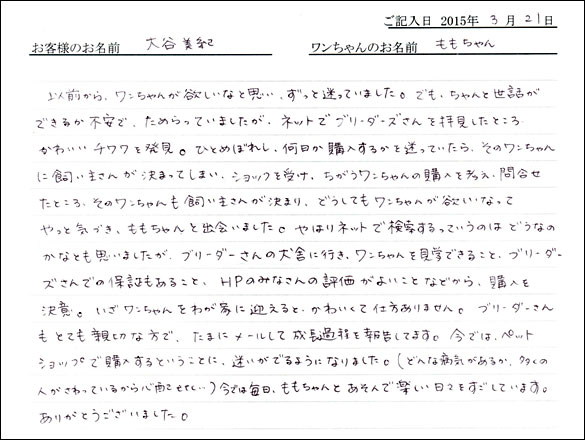 ご記入日 2015年 3月 21日
お客様のお名前 大谷 美紀 ワンちゃんのお名前 ももちゃん
以前から、ワンちゃんが欲しいなと思い、ずっと迷っていました。でも、ちゃんと世話が
できるか不安で、ためらっていましたが、ネットでブリーダーズさんを拝見したところ
かわいいチワワを発見。ひとめぼれし、何日か購入するかを迷っていたら、そのワンちゃん
に飼い主さんが決まってしまい、ショックを受け、ちがうワンちゃんの購入を考え、問合せ
たところ、そのワンちゃんも飼い主さんが決まり、どうしてもワンちゃんが欲しいなって
やっと気づき、ももちゃんと出会いました。やはりネットで検索するっていうのはどうなの
かなとも思いましたが、ブリーダーさんの犬舎に行き、ワンちゃんを見学できること、ブリーダー
ズさんでの保証もあること、HPのみなさんの評価がよいことなどから、購入を
決意。いざワンちゃんをわが家に迎えると、かわいくて仕方ありません。ブリーダーさん
もとても親切な方で、たまにメールして成長過程を報告してます。今では、ペット
ショップで購入するということに、迷いがでるようになりました。(どんな病気があるか、多くの
人がさわっているから心配させない)今では毎日、ももちゃんとあそんで楽しい日々をすごしています。
ありがとうございました。